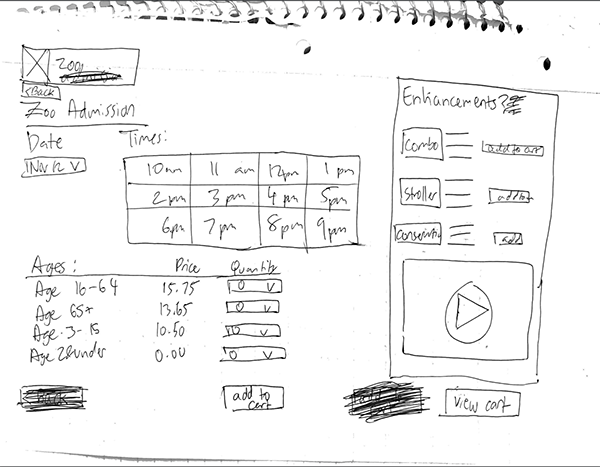 Zoo
<Back
Zoo Admission
Date
Times:
Nov 12 V
10 am 11 am 12pm 1 pm
2 pm 3 pm 4 pm 5pm
6pm 7pm 8pm 9pm
Ages: Price Quantity
Age 16-64 15.75 0 V
Age 65+ 13.65 0 V
Age 3-15 10.50 0 V
Age 2&under 0.00 0 V
add to
cart
Enhancements?
Combo
add to cart
Stroller
add to
add
view cart